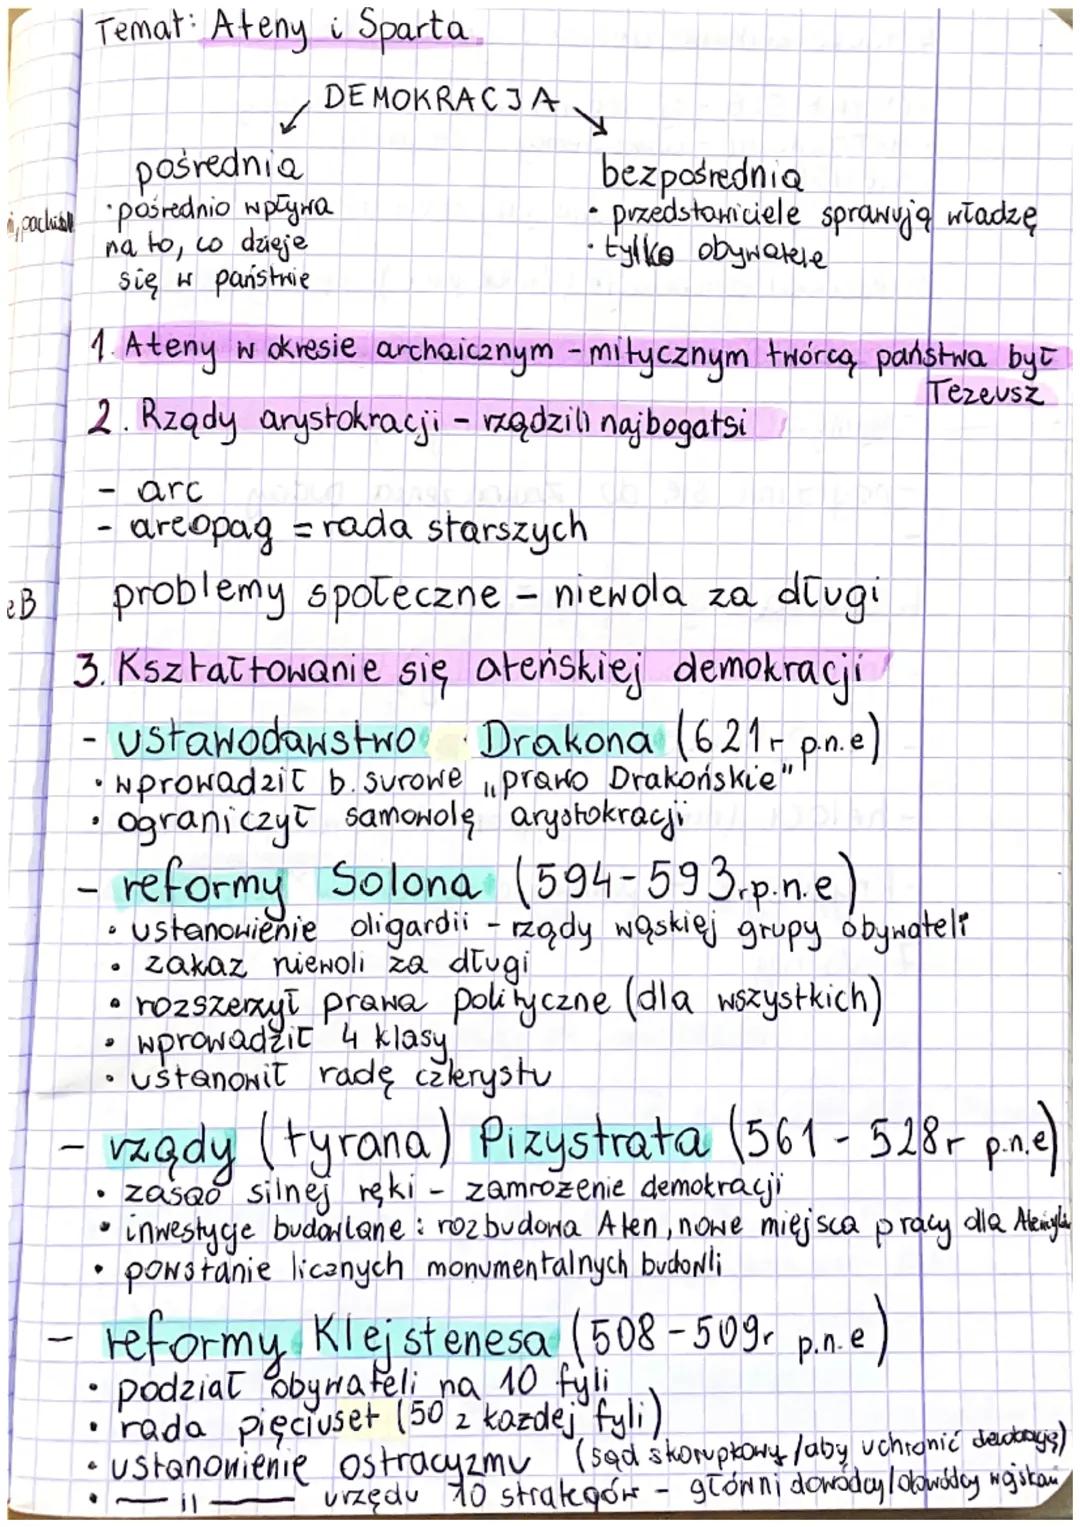 Temat: Ateny i Sparta
DEMOKRACJA
pośrednia
• pośrednio wpływa
na to, co dzieje
się w państwie
bezpośrednia
• przedstawiciele sprawują władzę
• tylko obywatele
1. Ateny w okresie archaicznym - mitycznym twórcą państwa był
Tezeusz
2. Rządy arystokracji - rządzili najbogatsi
- arc
- areopag = rada starszych
eB
problemy społeczne - niewola za długi
3. Kształtowanie się ateńskiej demokracji
- ustawodawstwo Drakona (621r p.n.e)
• wprowadził b. surowe „prawo Drakońskie"
• ograniczył samowolę arystokracji
- reformy Solona (594-593r.p.n.e)
• ustanowienie oligardii - rządy wąskiej grupy obywateli
• zakaz niewoli za długi
• rozszerzył prawa polityczne (dla wszystkich)
• wprowadził 4 klasy
• ustanowił radę czterystu
- rządy (tyrana) Pizystrata (561 - 528r p.n.e)
• zasad silnej ręki - zamrożenie demokracji
• inwestycje budowlane: rozbudowa Aten, nowe miejsca pracy dla
• powstanie licznych monumentalnych budowli
- reformy Klejstenesa (508-509r p.n.e)
• podział obywateli na 10 fyli
• rada pięciuset (50 z każdej fyli)
• ustanowienie ostracyzmu (sąd skorupkowy / aby uchronić
• — 11 — urzędu 10 strategów - główni dowódcy / dowódcy wojskowi